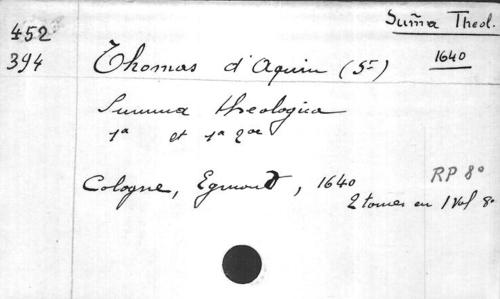 Sum̃a Theol.
452
394
Thomas d'Aquin (St)
1640
Summa theologica
1a et 1a 2ae
Cologne, Egmond, 1640
RP 8°
2 tomes en 1 Vol 8°